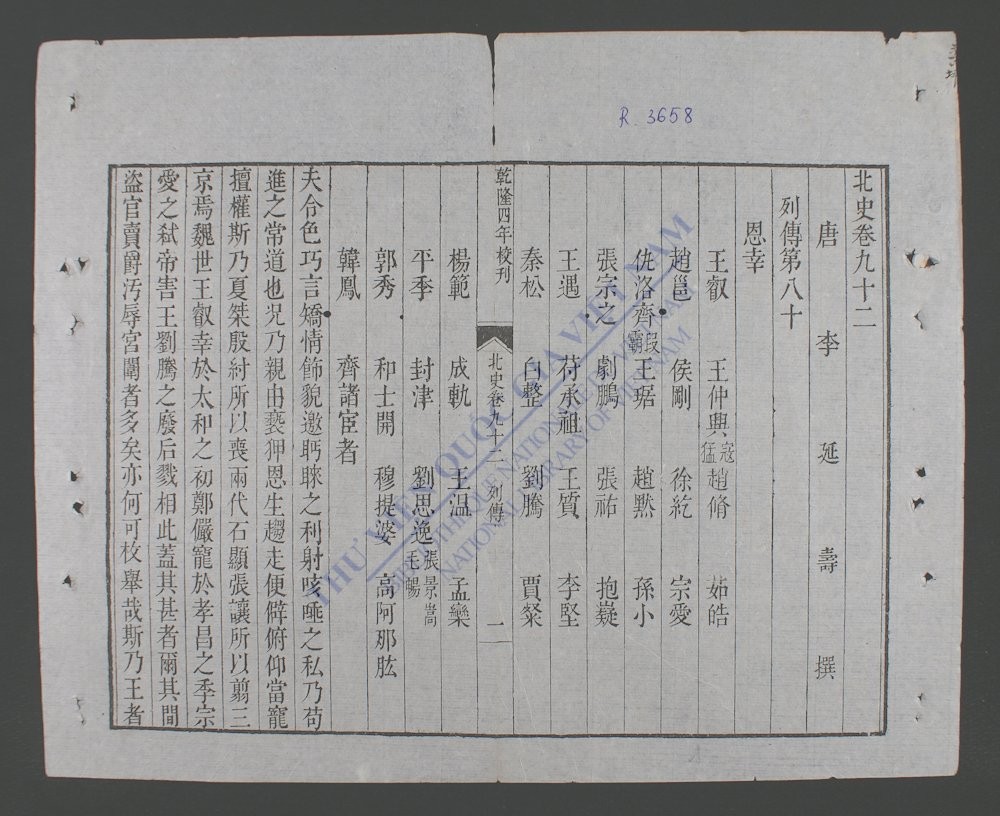 R. 3658
北史卷九十二
唐 李 延 壽 撰
列傳第八十
恩幸
王叡 王仲興 寇猛 趙脩 茹皓
趙邕 侯剛 徐紇 宗愛
仇洛齊 段霸 王琚 趙黙 孫小
張宗之 劇鵬 張祐 抱嶷
王遇 苻承祖 王質 李堅
秦松 白整 劉騰 賈粲
乾隆四年校刊 北史卷九十二 列傳 一
楊範 成軌 王溫 孟欒
平季 封津 劉思逸 張景嵩 毛暢
郭秀 和士開 穆提婆 高阿那肱
韓鳳 齊諸宦者
夫令色巧言矯情飾貌邀眄睞之利射咳唾之私乃苟
進之常道也况乃親由褻狎恩生趨走便僻俯仰當寵
擅權斯乃夏桀殷紂所以喪兩代石顯張讓所以翦二
京焉魏世王叡幸於太和之初鄭儼寵於孝昌之季宗
愛之弑帝害王劉騰之廢后戮相此蓋其甚者爾其間
盜官賣爵汚辱宮闈者多矣亦何可枚舉哉斯乃王者
THƯ VIỆN QUỐC GIA VIỆT NAM
BIBLIOTHÈQUE NATIONALE DU VIETNAM
NATIONAL LIBRARY OF VIETNAM